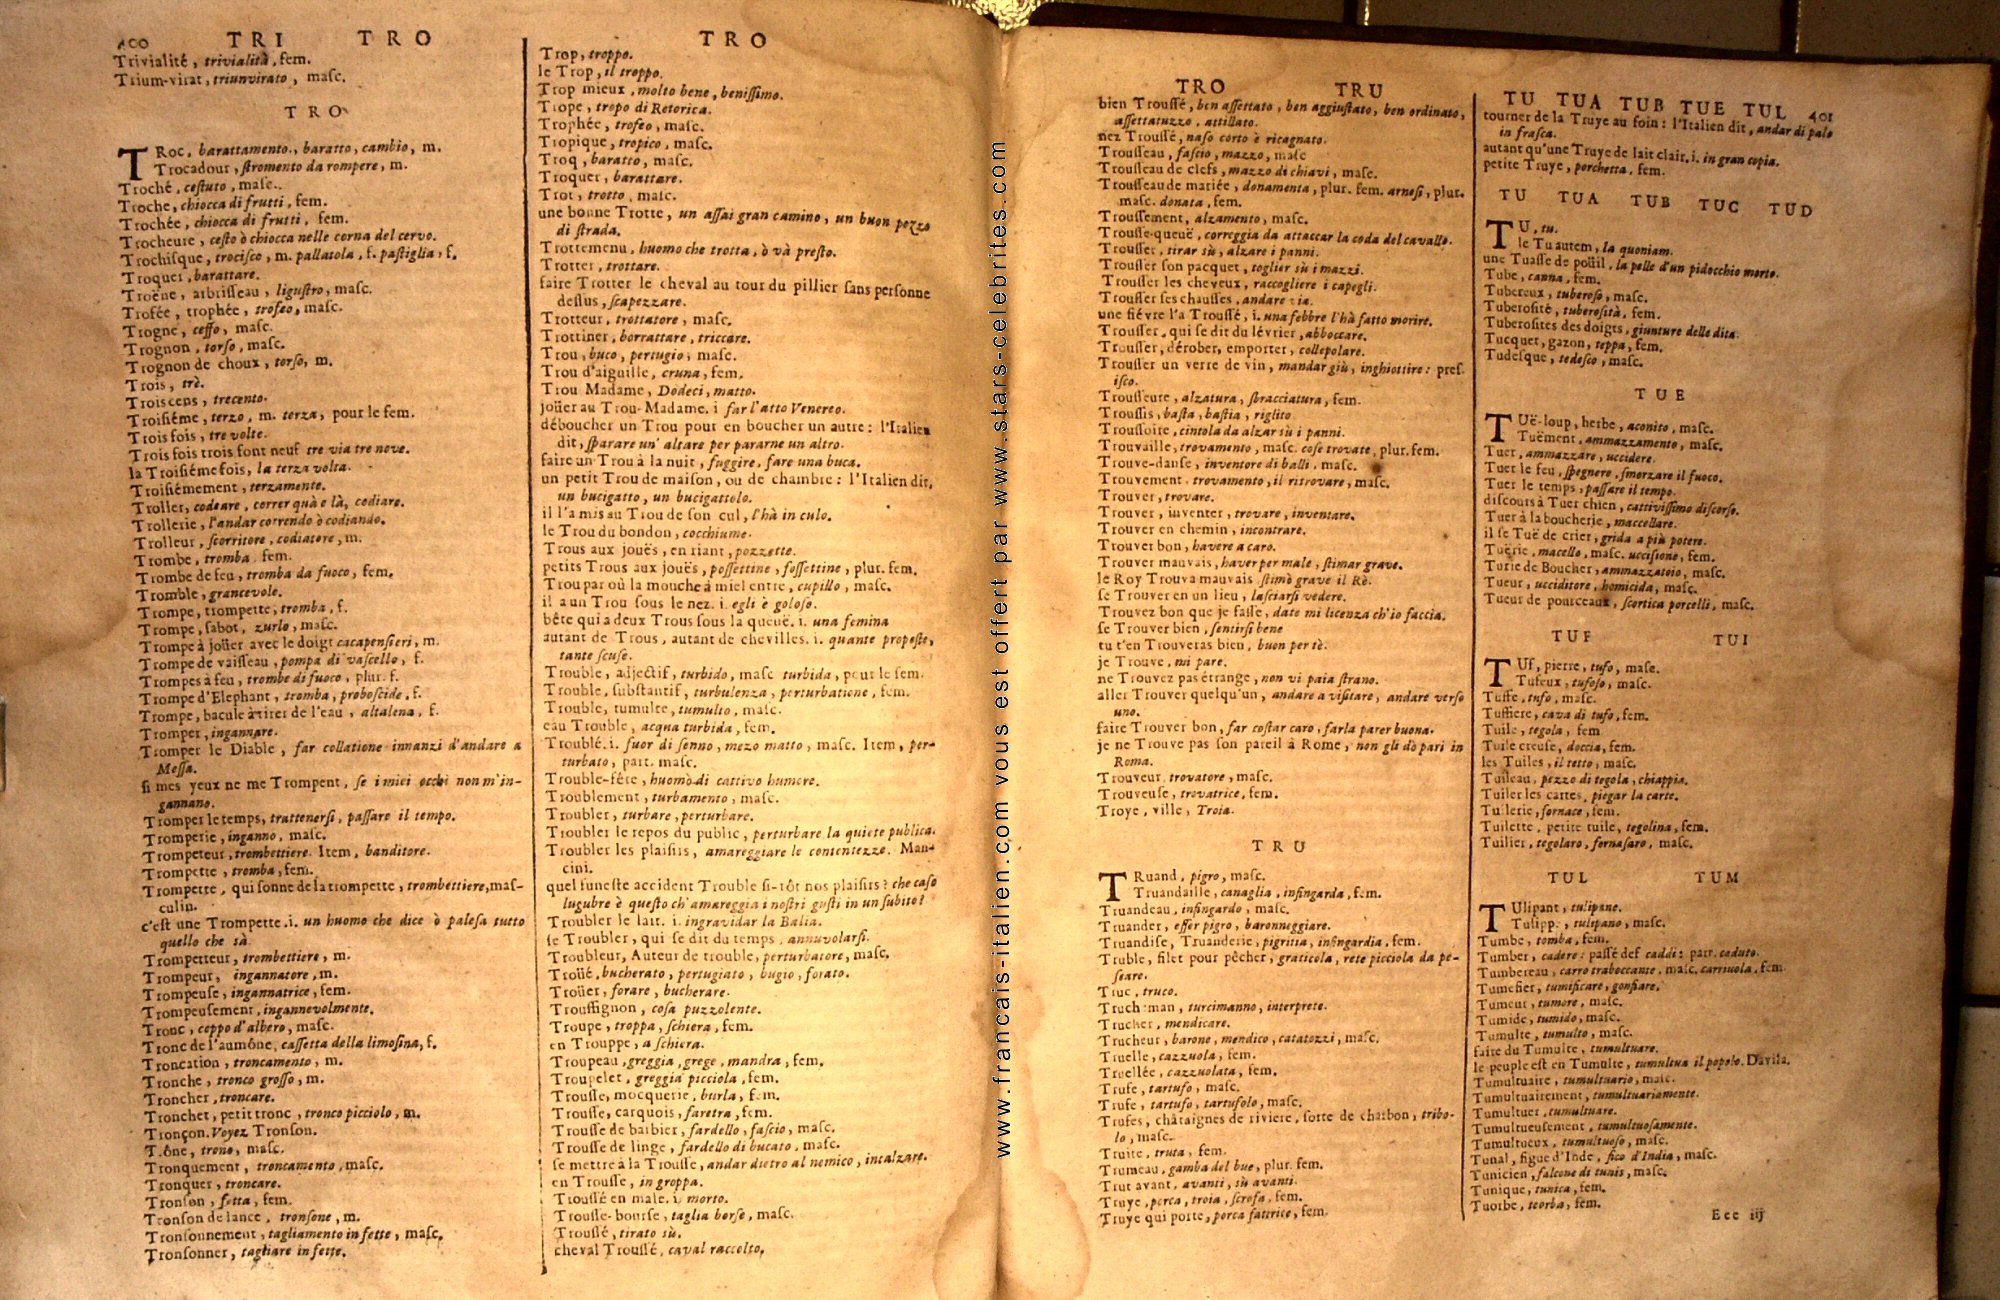 400 TRI TRO
Trivialité, trivialità, fem.
Trium-virat, triunvirato, masc.
TRO
TRoc, barattamento, baratto, cambio, m.
Trocadour, stromento da rompere, m.
Troché, cestuto, masc.
Troche, chiocca di frutti, fem.
Trochée, chiocca di frutti, fem.
Trocheure, cesto ò chiocca nelle corna del cervo.
Trochisque, trocisco, m. pallatola, f. pastiglia, f.
Troquer, barattare.
Troëne, arbrisseau, ligustro, masc.
Trofée, trophée, trofeo, masc.
Trogne, ceffo, masc.
Trognon, torso, masc.
Trognon de choux, torso, m.
Trois, trè.
Trois cens, trecento.
Troisiéme, terzo, m. terza, pour le fem.
Trois fois, tre volte.
Trois fois trois font neuf tre via tre nove.
la Troisiéme fois, la terza volta.
Troisiémement, terzamente.
Troller, codeare, correr quà e là, codiare.
Trollerie, l'andar correndo ò codiando.
Trolleur, scorritore, codiatore, m.
Trombe, tromba, fem.
Trombe de feu, tromba da fuoco, fem.
Tromble, grancevole.
Trompe, trompette, tromba, f.
Trompe, sabot, zurlo, masc.
Trompe à joüer avec le doigt cacapensieri, m.
Trompe de vaisseau, pompa di vascello, f.
Trompes à feu, trombe di fuoco, plur. f.
Trompe d'Elephant, tromba, proboscide, f.
Trompe, bacule à tirer de l'eau, altalena, f.
Tromper, ingannare.
Tromper le Diable, far collatione innanzi d'andare a
Messa.
si mes yeux ne me Trompent, se i miei occhi non m'in-
gannano.
Tromper le temps, trattenersi, passare il tempo.
Tromperie, inganno, masc.
Trompeteur, trombettiere. Item, banditore.
Trompette, tromba, fem.
Trompette, qui sonne de la trompette, trombettiere, mas-
culin.
c'est une Trompette. i. un huomo che dice ò palesa tutto
quello che sà.
Trompetteur, trombettiere, m.
Trompeur, ingannatore, m.
Trompeuse, ingannatrice, fem.
Trompeusement, ingannevolmente.
Tronc, ceppo d'albero, masc.
Tronc de l'aumône, cassetta della limosina, f.
Troncation, troncamento, m.
Tronche, tronco grosso, m.
Troncher, troncare.
Tronchet, petit tronc, tronco picciolo, m.
Tronçon. Voyez Tronson.
T.ône, trono, masc.
Tronquement, troncamento, masc.
Tronquer, troncare.
Tronson, fetta, fem.
Tronson de lance, tronsone, m.
Tronsonnement, tagliamento in fette, masc.
Tronsonner, tagliare in fette.
TRO
Trop, troppo.
le Trop, il troppo.
Trop mieux, molto bene, benissimo.
Trope, tropo di Retorica.
Trophée, trofeo, masc.
Tropique, tropico, masc.
Troq, baratto, masc.
Troquer, barattare.
Trot, trotto, masc.
une bonne Trotte, un assai gran camino, un buon pezzo
di strada.
Trottemenu, huomo che trotta, ò và presto.
Trotter, trottare.
faire Trotter le cheval au tour du pillier sans personne
dessus, scapezzare.
Trotteur, trottatore, masc.
Trottiner, borrattare, triccare.
Trou, buco, pertugio, masc.
Trou d'aiguille, cruna, fem.
Trou Madame, Dodeci, matto.
joüer au Trou-Madame. i far l'atto Venereo.
déboucher un Trou pour en boucher un autre: l'Italien
dit, sparare un' altare per pararne un altro.
faire un Trou à la nuit, fuggire, fare una buca.
un petit Trou de maison, ou de chambre: l'Italien dit,
un bucigatto, un bucigattolo.
il l'a mis au Trou de son cul, l'hà in culo.
le Trou du bondon, cocchiume.
Trous aux jouës, en riant, pozzette.
petits Trous aux jouës, possettine, fossettine, plur. fem.
Trou par où la mouche à miel entre, cupillo, masc.
il a un Trou sous le nez. i. egli è goloso.
bête qui a deux Trous sous la queuë. i. una femina
autant de Trous, autant de chevilles. i. quante proposte,
tante scuse.
Trouble, adjectif, turbido, masc turbida, pour le fem.
Trouble, substantif, turbulenza, perturbatione, fem.
Trouble, tumulte, tumulto, masc.
eau Trouble, acqua turbida, fem.
Troublé. i. fuor di senno, mezo matto, masc. Item, per-
turbato, part. masc.
Trouble-fête, huomo di cattivo humore.
Troublement, turbamento, masc.
Troubler, turbare, perturbare.
Troubler le repos du public, perturbare la quiete publica.
Troubler les plaisirs, amareggiare le contentezze. Man-
cini.
quel funeste accident Trouble si-tôt nos plaisirs? che caso
lugubre è questo ch'amareggia i nostri gusti in un subito?
Troubler le lait. i. ingravidar la Balia.
se Troubler, qui se dit du temps, annuvolarsi.
Troubleur, Auteur de trouble, perturbatore, masc.
Troüé, bucherato, pertugiato, bugio, forato.
Troüer, forare, bucherare.
Troussignon, cosa puzzolente.
Troupe, troppa, schiera, fem.
en Trouppe, a schiera.
Troupeau, greggia, grege, mandra, fem.
Troupelet, greggia picciola, fem.
Trousse, mocquerie, burla, fem.
Trousse, carquois, faretra, fem.
Trousse de barbier, fardello, fascio, masc.
Trousse de linge, fardello di bucato, masc.
se mettre à la Trousse, andar dietro al nemico, incalzare.
en Trousse, in groppa.
Troussé en male. i. morto.
Trousse-bourse, taglia borse, masc.
Troussé, tirato sù.
cheval Troussé, caval raccolto.
www.francais-italien.com vous est offert par www.stars-celebrites.com
TRO TRU
bien Troussé, ben assettato, ben aggiustato, ben ordinato,
assettatuzzo, attillato.
nez Troussé, naso corto è ricagnato.
Trousseau, fascio, mazzo, masc
Trousseau de clefs, mazzo di chiavi, masc.
Trousseau de mariée, donamenta, plur. fem. arnesi, plur.
masc. donata, fem.
Troussement, alzamento, masc.
Trousse-queuë, correggia da attaccar la coda del cavallo.
Trousser, tirar sù, alzare i panni.
Trousser son pacquet, toglier sù i mazzi.
Trousser les cheveux, raccogliere i capegli.
Trousser ses chausses, andare via.
une fiévre l'a Troussé, i. una febbre l'hà fatto morire.
Trousser, qui se dit du lévrier, abboccare.
Trousser, dérober, emporter, collepolare.
Trousser un verre de vin, mandar giù, inghiottire: pres.
isco.
Trousseure, alzatura, sbracciatura, fem.
Troussis, basta, bastia, riglito
Troussoire, cintola da alzar sù i panni.
Trouvaille, trovamento, masc. cose trovate, plur. fem.
Trouve-danse, inventore di balli, masc.
Trouvement, trovamento, il ritrovare, masc.
Trouver, trovare.
Trouver, inventer, trovare, inventare.
Trouver en chemin, incontrare.
Trouver bon, havere a caro.
Trouver mauvais, haver per male, stimar grave.
le Roy Trouva mauvais stimò grave il Rè.
se Trouver en un lieu, lasciarsi vedere.
Trouvez bon que je fasse, date mi licenza ch'io faccia.
se Trouver bien, sentirsi bene
tu t'en Trouveras bien, buon per tè.
je Trouve, mi pare.
ne Trouvez pas étrange, non vi paia strano.
aller Trouver quelqu'un, andare a visitare, andare verso
uno.
faire Trouver bon, far costar caro, farla parer buona.
je ne Trouve pas son pareil à Rome, non gli dò pari in
Roma.
Trouveur, trovatore, masc.
Trouveuse, trovatrice, fem.
Troye, ville, Troia.
TRU
TRuand, pigro, masc.
Truandaille, canaglia, infingarda, fem.
Truandeau, infingardo, masc.
Truander, esser pigro, baronneggiare.
Truandise, Truanderie, pigritia, infingardia, fem.
Truble, filet pour pêcher, graticola, rete picciola da pe-
scare.
Truc, truco.
Truch.man, turcimanno, interprete.
Trucher, mendicare.
Trucheur, barone, mendico, catatozzi, masc.
Truelle, cazzuola, fem.
Truellée, cazzuolata, fem.
Trufe, tartufo, masc.
Trufe, tartufo, tartufolo, masc.
Trufes, châtaignes de riviere, sorte de charbon, tribo-
lo, masc.
Truite, truta, fem.
Trumeau, gamba del bue, plur. fem.
Trut avant, avanti, sù avanti.
Truye, porca, troia, scrofa, fem.
Truye qui porte, porca fattrice, fem.
TU TUA TUB TUE TUL 401
tourner de la Truye au foin: l'Italien dit, andar di palo
in frasca.
autant qu'une Truye de lait clair. i. in gran copia.
petite Truye, porchetta, fem.
TU TUA TUB TUC TUD
TU, tu.
le Tu autem, la quoniam.
une Tuasse de poüil, la pelle d'un pidocchio morto.
Tube, canna, fem.
Tubereux, tuberoso, masc.
Tuberosité, tuberosità, fem.
Tuberosites des doigts, giunture delle dita.
Tucquet, gazon, teppa, fem.
Tudesque, tedesco, masc.
TUE
TUë-loup, herbe, aconito, masc.
Tuëment, ammazzamento, masc.
Tuer, ammazzare, uccidere.
Tuer le feu, spegnere, smorzare il fuoco.
Tuer le temps, passare il tempo.
discours à Tuer chien, cattivissimo discorso.
Tuer à la boucherie, maccellare.
il se Tuë de crier, grida a più potere.
Tuërie, macello, masc. uccisione, fem.
Turie de Boucher, ammazzatoio, masc.
Tueur, ucciditore, homicida, masc.
Tueur de pourceaux, scortica porcelli, masc.
TUF TUI
TUf, pierre, tufo, masc.
Tufeux, tufoso, masc.
Tuffe, tufo, masc.
Tuffiere, cava di tufo, fem.
Tuile, tegola, fem
Tuile creuse, doccia, fem.
les Tuiles, il tetto, masc.
Tuileau, pezzo di tegola, chiappia.
Tuiler les cartes, piegar la carte.
Tuilerie, fornace, fem.
Tuilette, petite tuile, tegolina, fem.
Tuilier, tegolaro, fornasaro, masc.
TUL TUM
TUlipant, tulipane.
Tulippe, tulipano, masc.
Tumbe, tomba, fem.
Tumber, cadere: passé def caddi: part. caduto.
Tumbereau, carro traboccante, masc. carriuola, fem.
Tumefier, tumificare, gonfiare.
Tumeur, tumore, masc.
Tumide, tumido, masc.
Tumulte, tumulto, masc.
faire du Tumulte, tumultuare.
le peuple est en Tumulte, tumultua il popolo. Davila.
Tumultuaire, tumultuario, masc.
Tumultuairement, tumultuariamente.
Tumultuer, tumultuare.
Tumultueusement, tumultuosamente.
Tumultueux, tumultuoso, masc.
Tunal, figue d'Inde, fico d'India, masc.
Tunicien, falcone di tunis, masc.
Tunique, tunica, fem.
Tuorbe, teorba, fem.
Eee iij